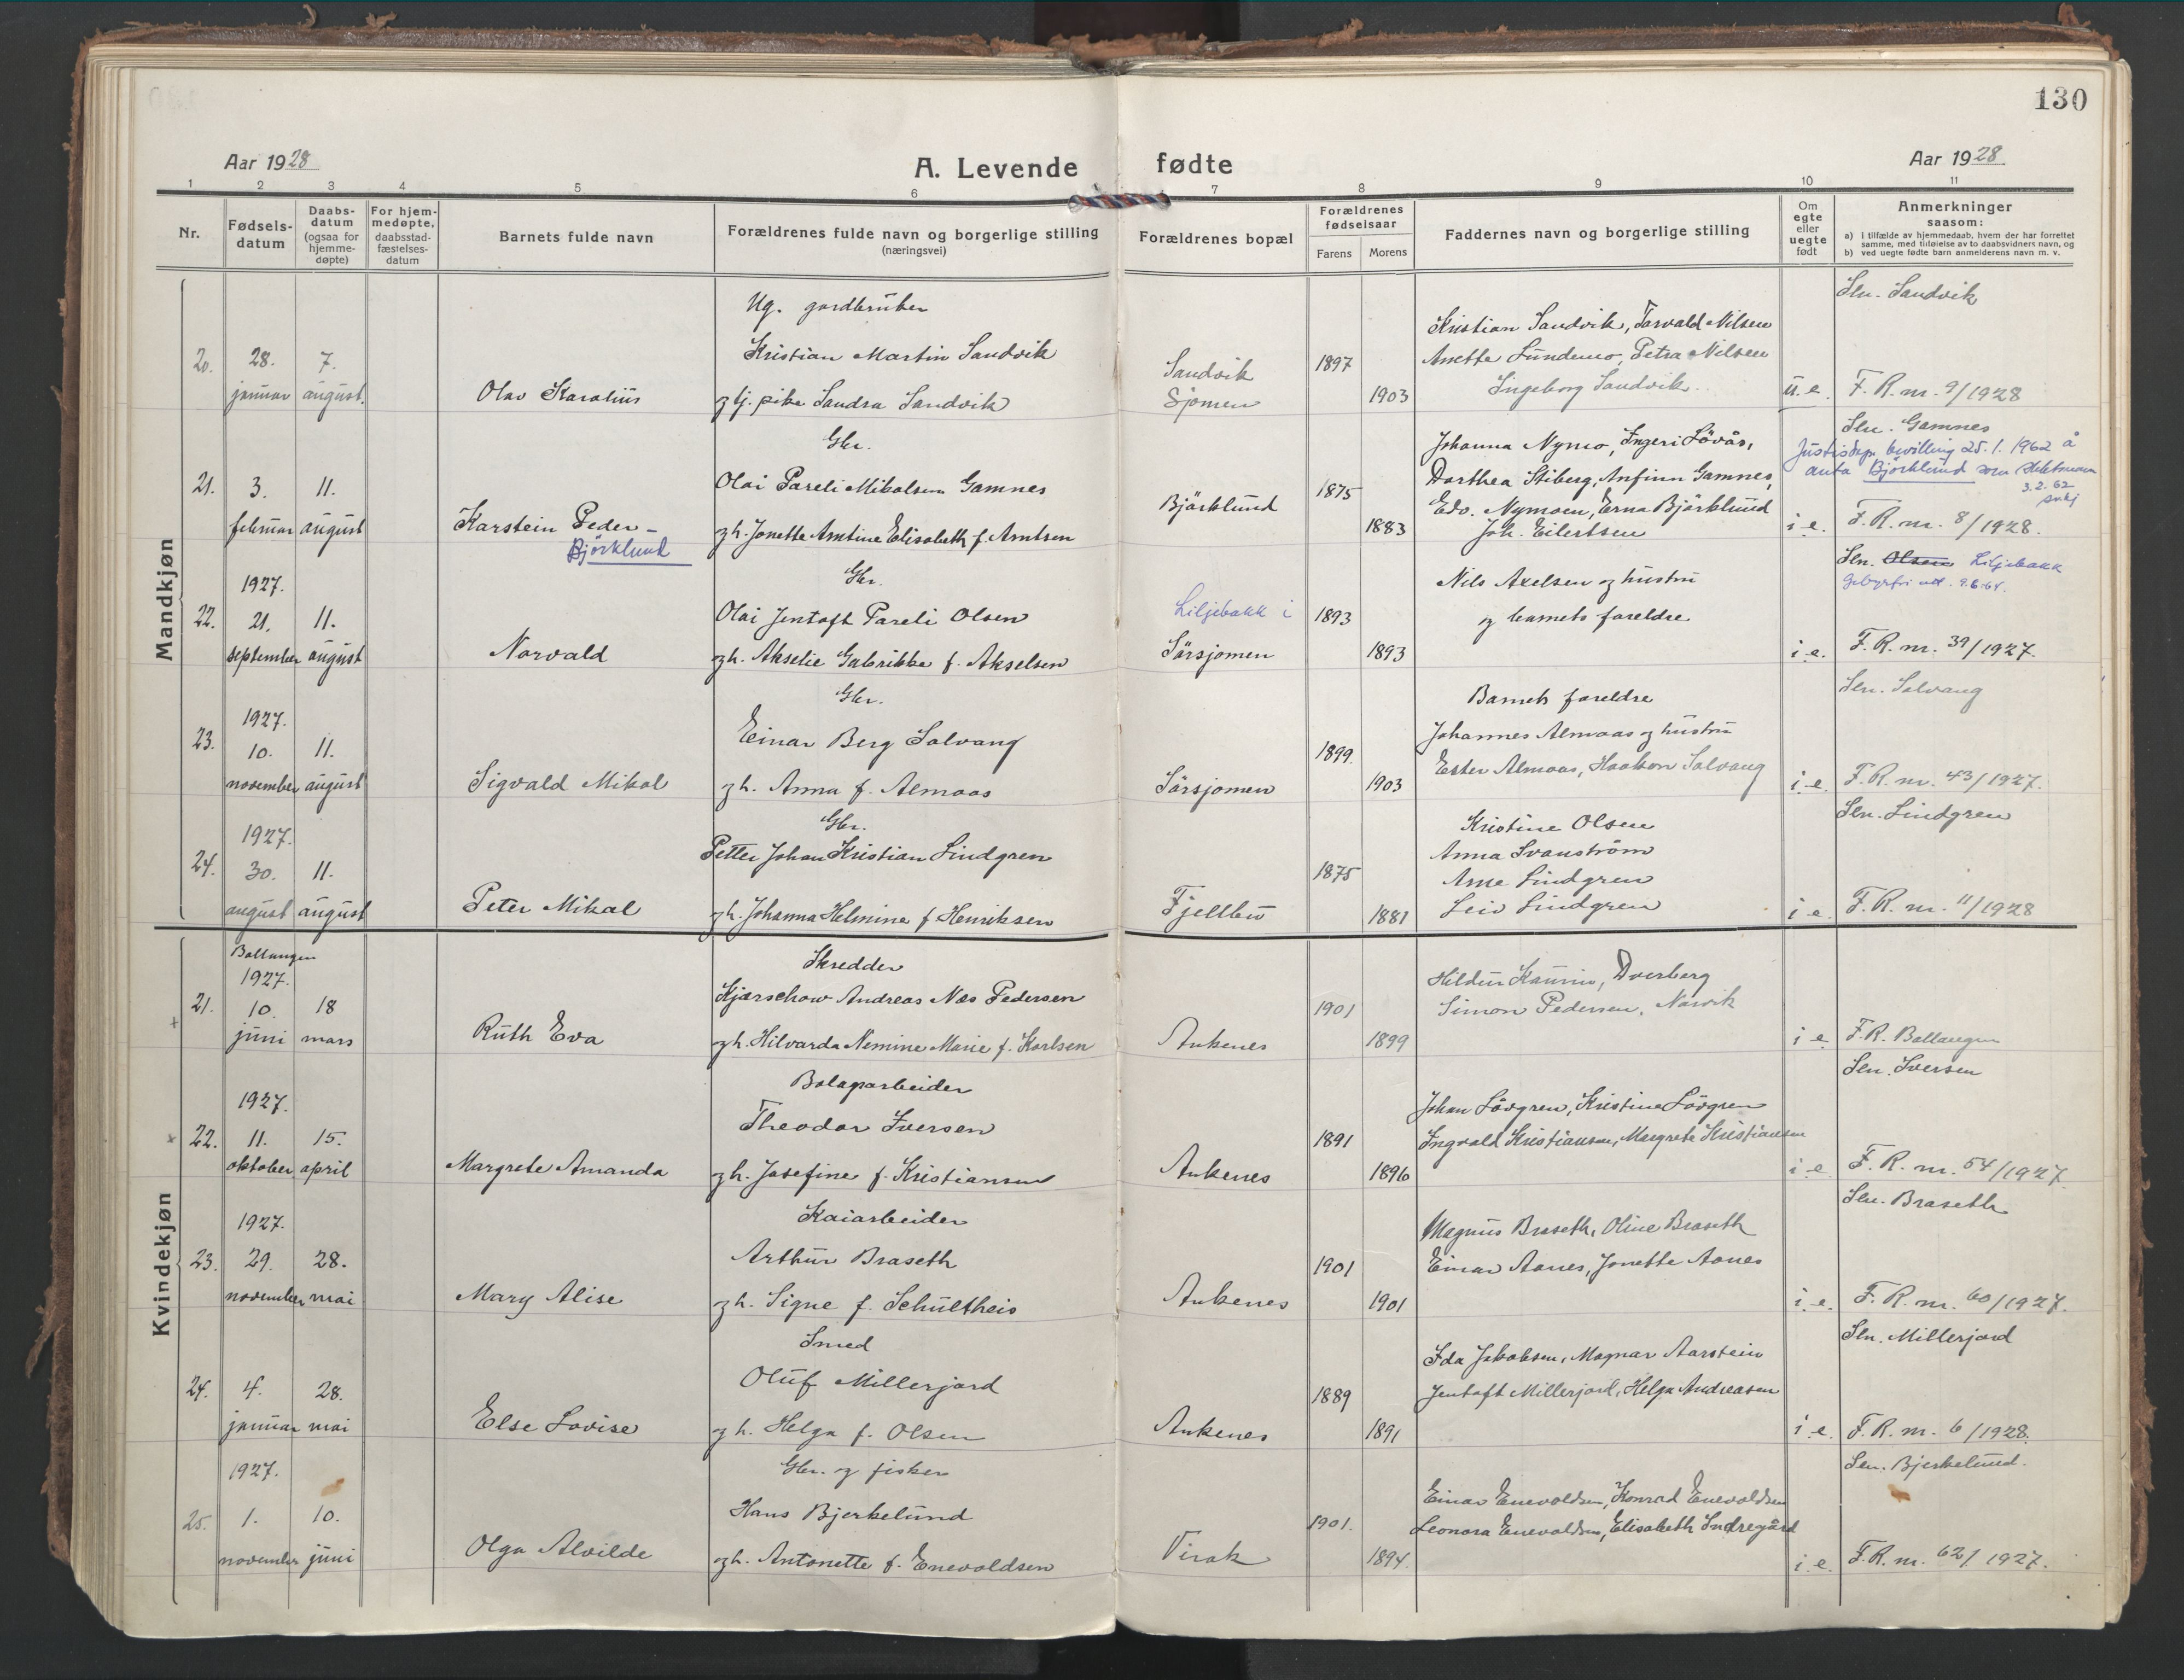 130
Aar 1928
A. Levende fødte
Aar 1928
1 2 3 4 5 6 7 8 9 10 11
Nr.
Fødsels-
datum
Daabs-
datum
(ogsaa for
hjemme-
døpte)
For hjem-
medøpte,
daabsstad-
fæstelses-
datum
Barnets fulde navn
Forældrenes fulde navn og borgerlige stilling
(næringsvei)
Forældrenes bopæl
Forældrenes
fødselsaar
Farens Morens
Faddernes navn og borgerlige stilling
Om
egte
eller
uegte
født
Anmerkninger
saasom:
a) i tilfælde av hjemmedaab, hvem der har forrettet
samme, med tilføielse av to daabsvidners navn, og
b) ved uegte fødte barn anmelderens navn m. v.
Mandkjøn
20.
28.
januar
7.
august.
Olav Karolius
Ug. gardbruker
Kristian Martin Sandvik
og tj. pike Sandra Sandvik
Sandvik
Sjømen
1897
1903
Kristian Sandvik, Torvald Nilsen
Anette Lundemo, Petra Nilsen
Ingeborg Sandvik.
u. e.
Sln. Sandvik
F. R. nr. 9/1928
21.
3.
februar
11.
august
Karstein Peder -
Björklund
Gbr.
Olai Pareli Mikalsen Gamnes
og h. Jonette Arntine Elisabeth f. Arntsen
Björklund
1875
1883
Johanna Nymo, Ingeri Lövås,
Dorthea Stiberg, Anfinn Gamnes,
Edv. Nymoen, Erna Björklund
Joh. Eilertsen
i e.
Sln. Gamnes
Justisdep. bevilling 25.1.1962 å
anta Björklund som slektsnavn
3.2.62
F. R. nr. 8/1928.
22.
1927.
21.
september
11.
august
Norvald
Gbr.
Olai Jentoft Pareli Olsen
og h. Akselie Gabrikke f. Akselsen
Liljebakk i
Sørsjomen
1893
1893
Nils Axelsen og hustru
og barnets foreldre
i e.
Sln. Olsen Liljebakk
F. R. nr. 39/1927.
23.
1927.
10.
november
11.
august
Sigvald Mikal
Gbr.
Einar Berg Solvang
og h. Anna f. Almaas
Sørsjomen
1899.
1903
Barnets foreldre
Johannes Almaas og hustru
Ester Almaas, Haakon Solvang
i. e.
Sln. Solvang
F. R. nr. 43/1927.
24.
1927.
30.
august
11.
august
Peter Mikal
Gbr.
Petter Johan Kristian Lindgren
og h. Johanna Helmine f. Henriksen
Fjellbu
1875
1881
Kristine Olsen
Anna Svanström
Arne Lindgren
Leiv Lindgren
i e.
Sln. Lindgren
F. R. nr. 11/1928
Kvindekjøn
21.
Ballangen
1927.
10.
juni
18
mars
Ruth Eva
Skredder
Kjærschow Andreas Næs Pedersen
og h. Hilvarda Nemine Marie f. Karlsen
Ankenes
1901
1899
Simon Pedersen, Narvik
i e
F. R. Ballangen
22.
1927.
11.
oktober
15.
april
Margrete Amanda
Bolagsarbeider
Theodor Iversen
og h. Josefine f. Kristiansen
Ankenes
1891
1896
Johan Lövgren, Kristine Lövgren
Ingvald Kristiansen, Margrete Kristiansen
i e
Sln. Iversen
F. R. nr. 54/1927
23.
1927.
29.
november
28.
mai
Mary Alise
Kaiarbeider
Arthur Braseth
og h. Signe f. Schultheis
Ankenes
1901
1901
Magnus Braseth, Oline Braseth
Einar Aanes, Jonette Aanes
i. e.
Sln. Braseth
F. R. nr. 60/1927.
24.
4.
januar
28.
mai
Else Lovise
Smed
Oluf Millerjord
og h. Helga f. Olsen
Ankenes
1889
1891
Ida Jakobsen, Magnar Aarstein
Jentoft Millerjord, Helga Andreasen
i e.
Sln. Millerjord
F. R. nr. 6/1928.
25.
1927.
1.
november
10.
juni
Olga Alvilde
Gbr. og fisker
Hans Bjerkelund
og h. Antonette f. Enevoldsen
Virak
1901.
1894.
Einar Enevoldsen, Konrad Enevoldsen
Leonora Enevoldsen, Elisabeth Indregård
i. e.
Sln. Bjerkelund.
F. R. nr. 62/1927.